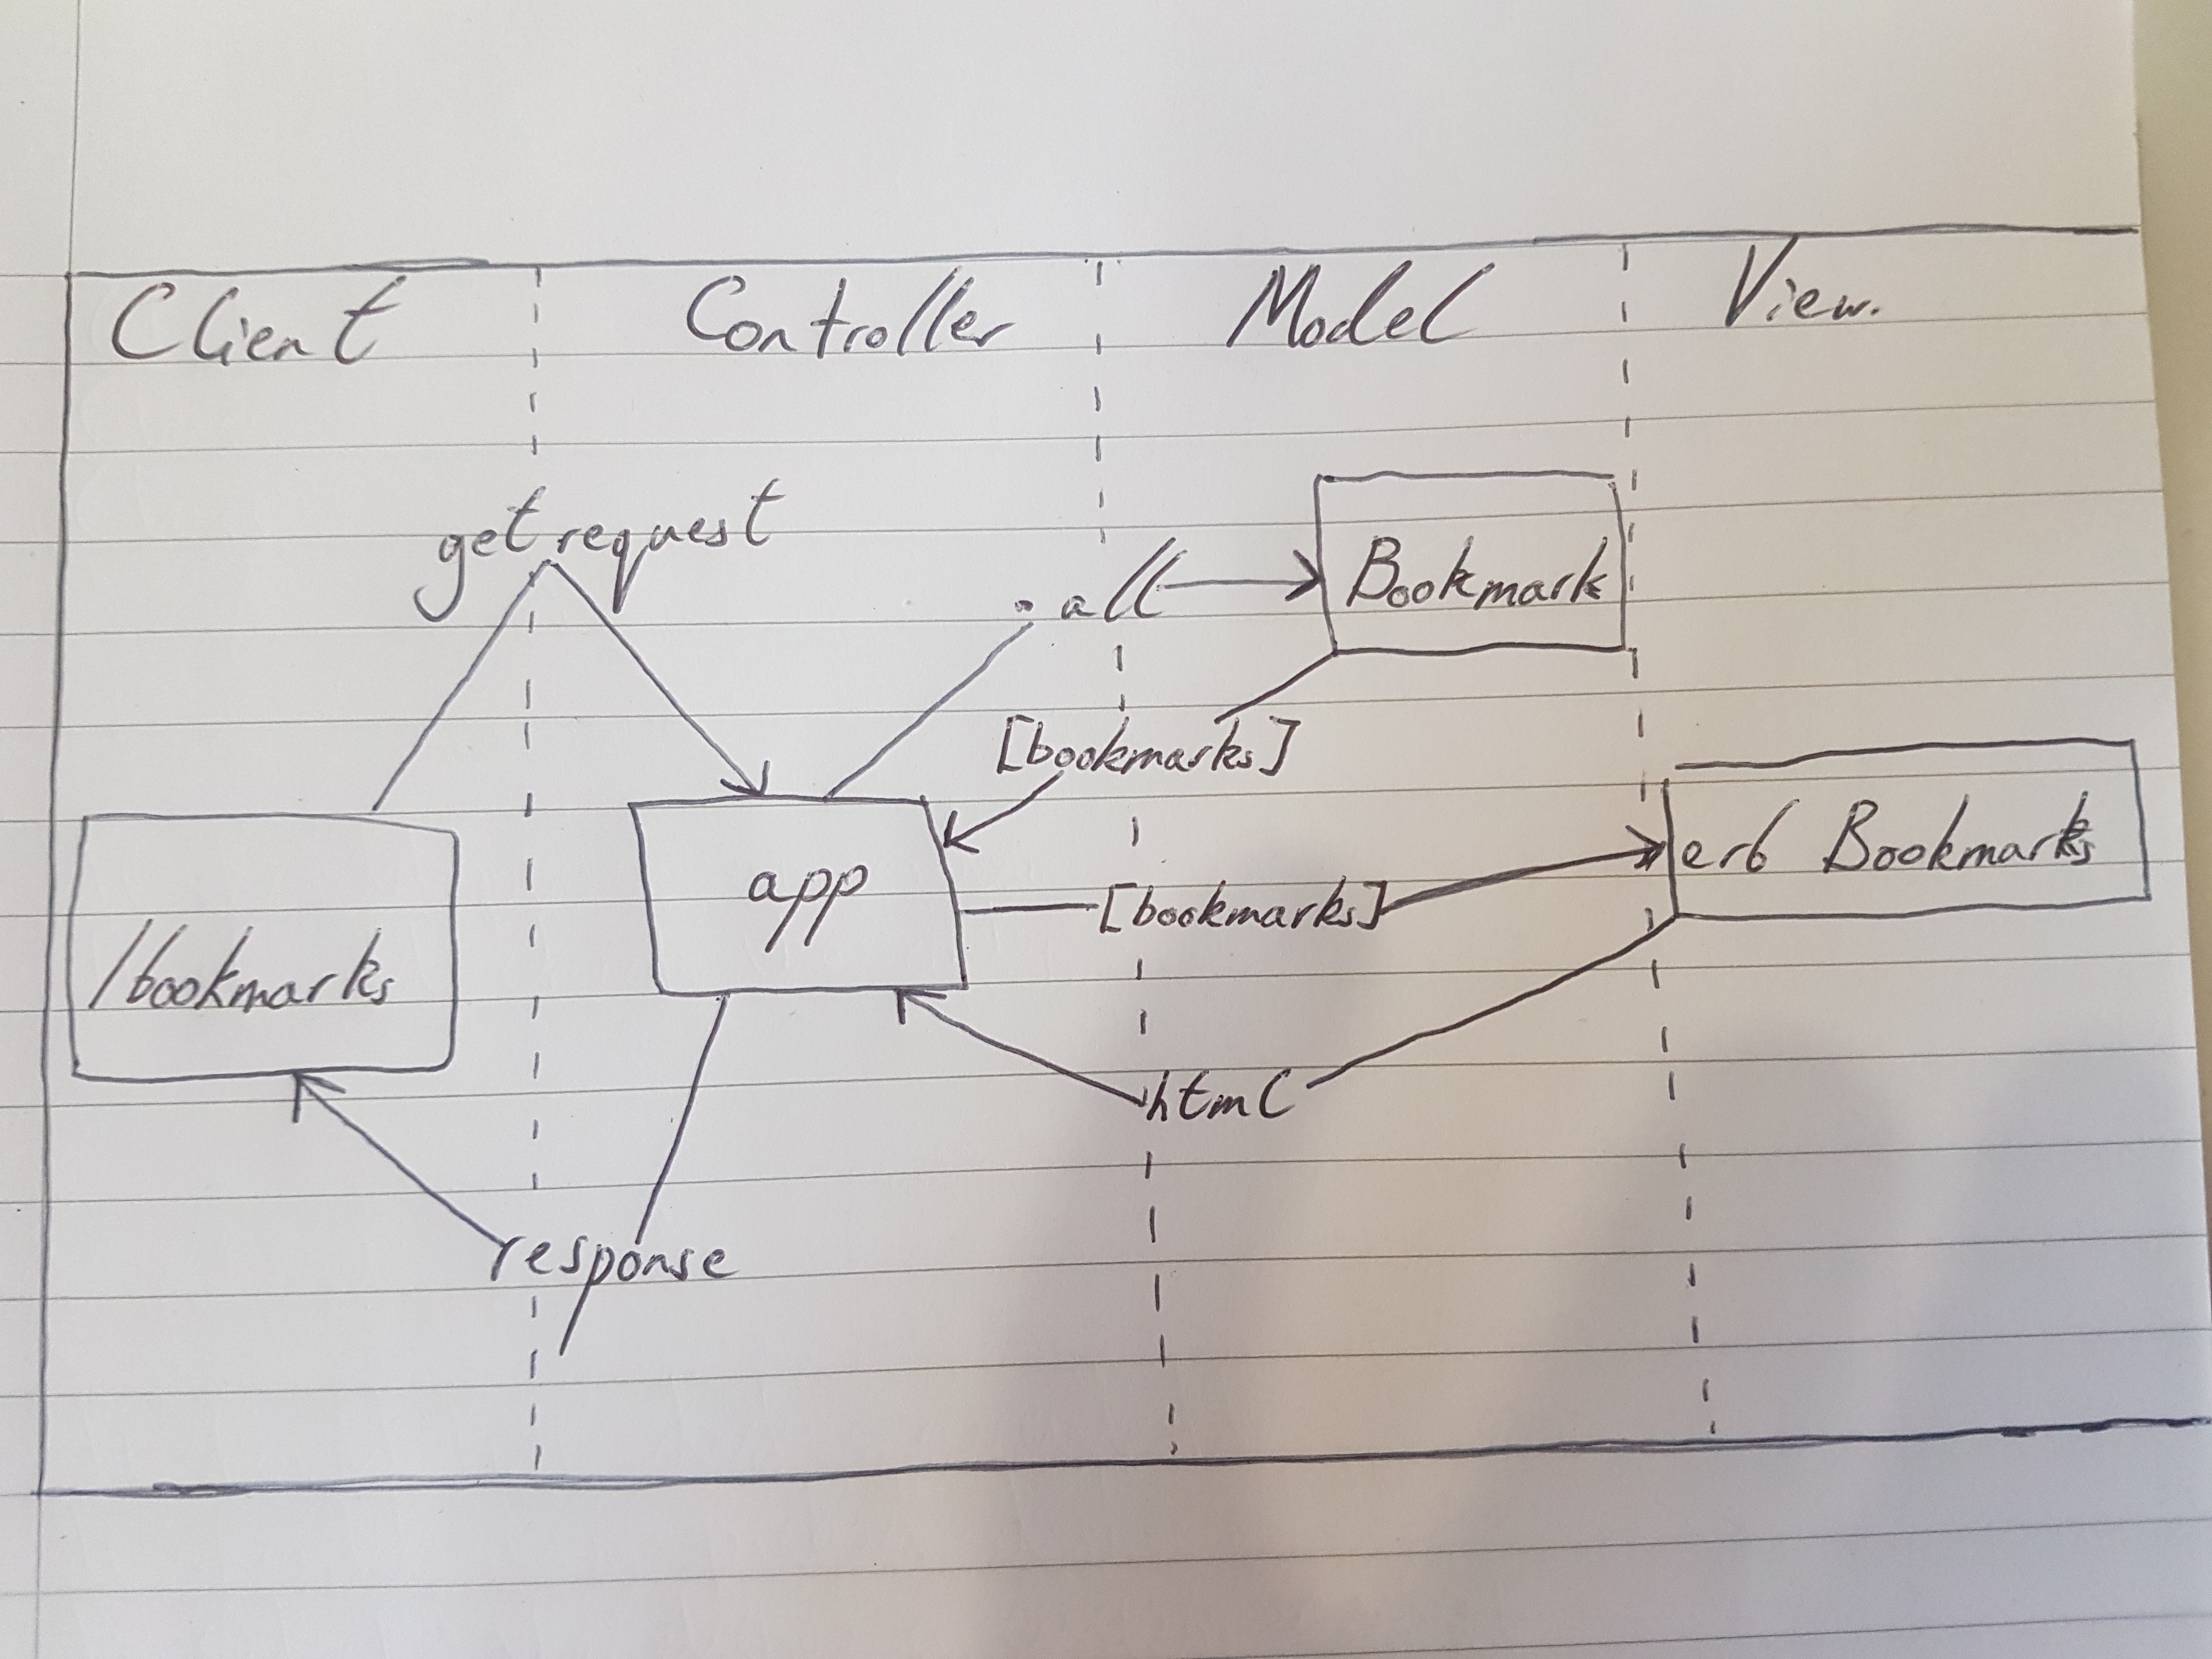 Client Controller Model View.
get request
.all
Bookmark
[bookmarks]
erb Bookmarks
app
[bookmarks]
/bookmarks
html
response